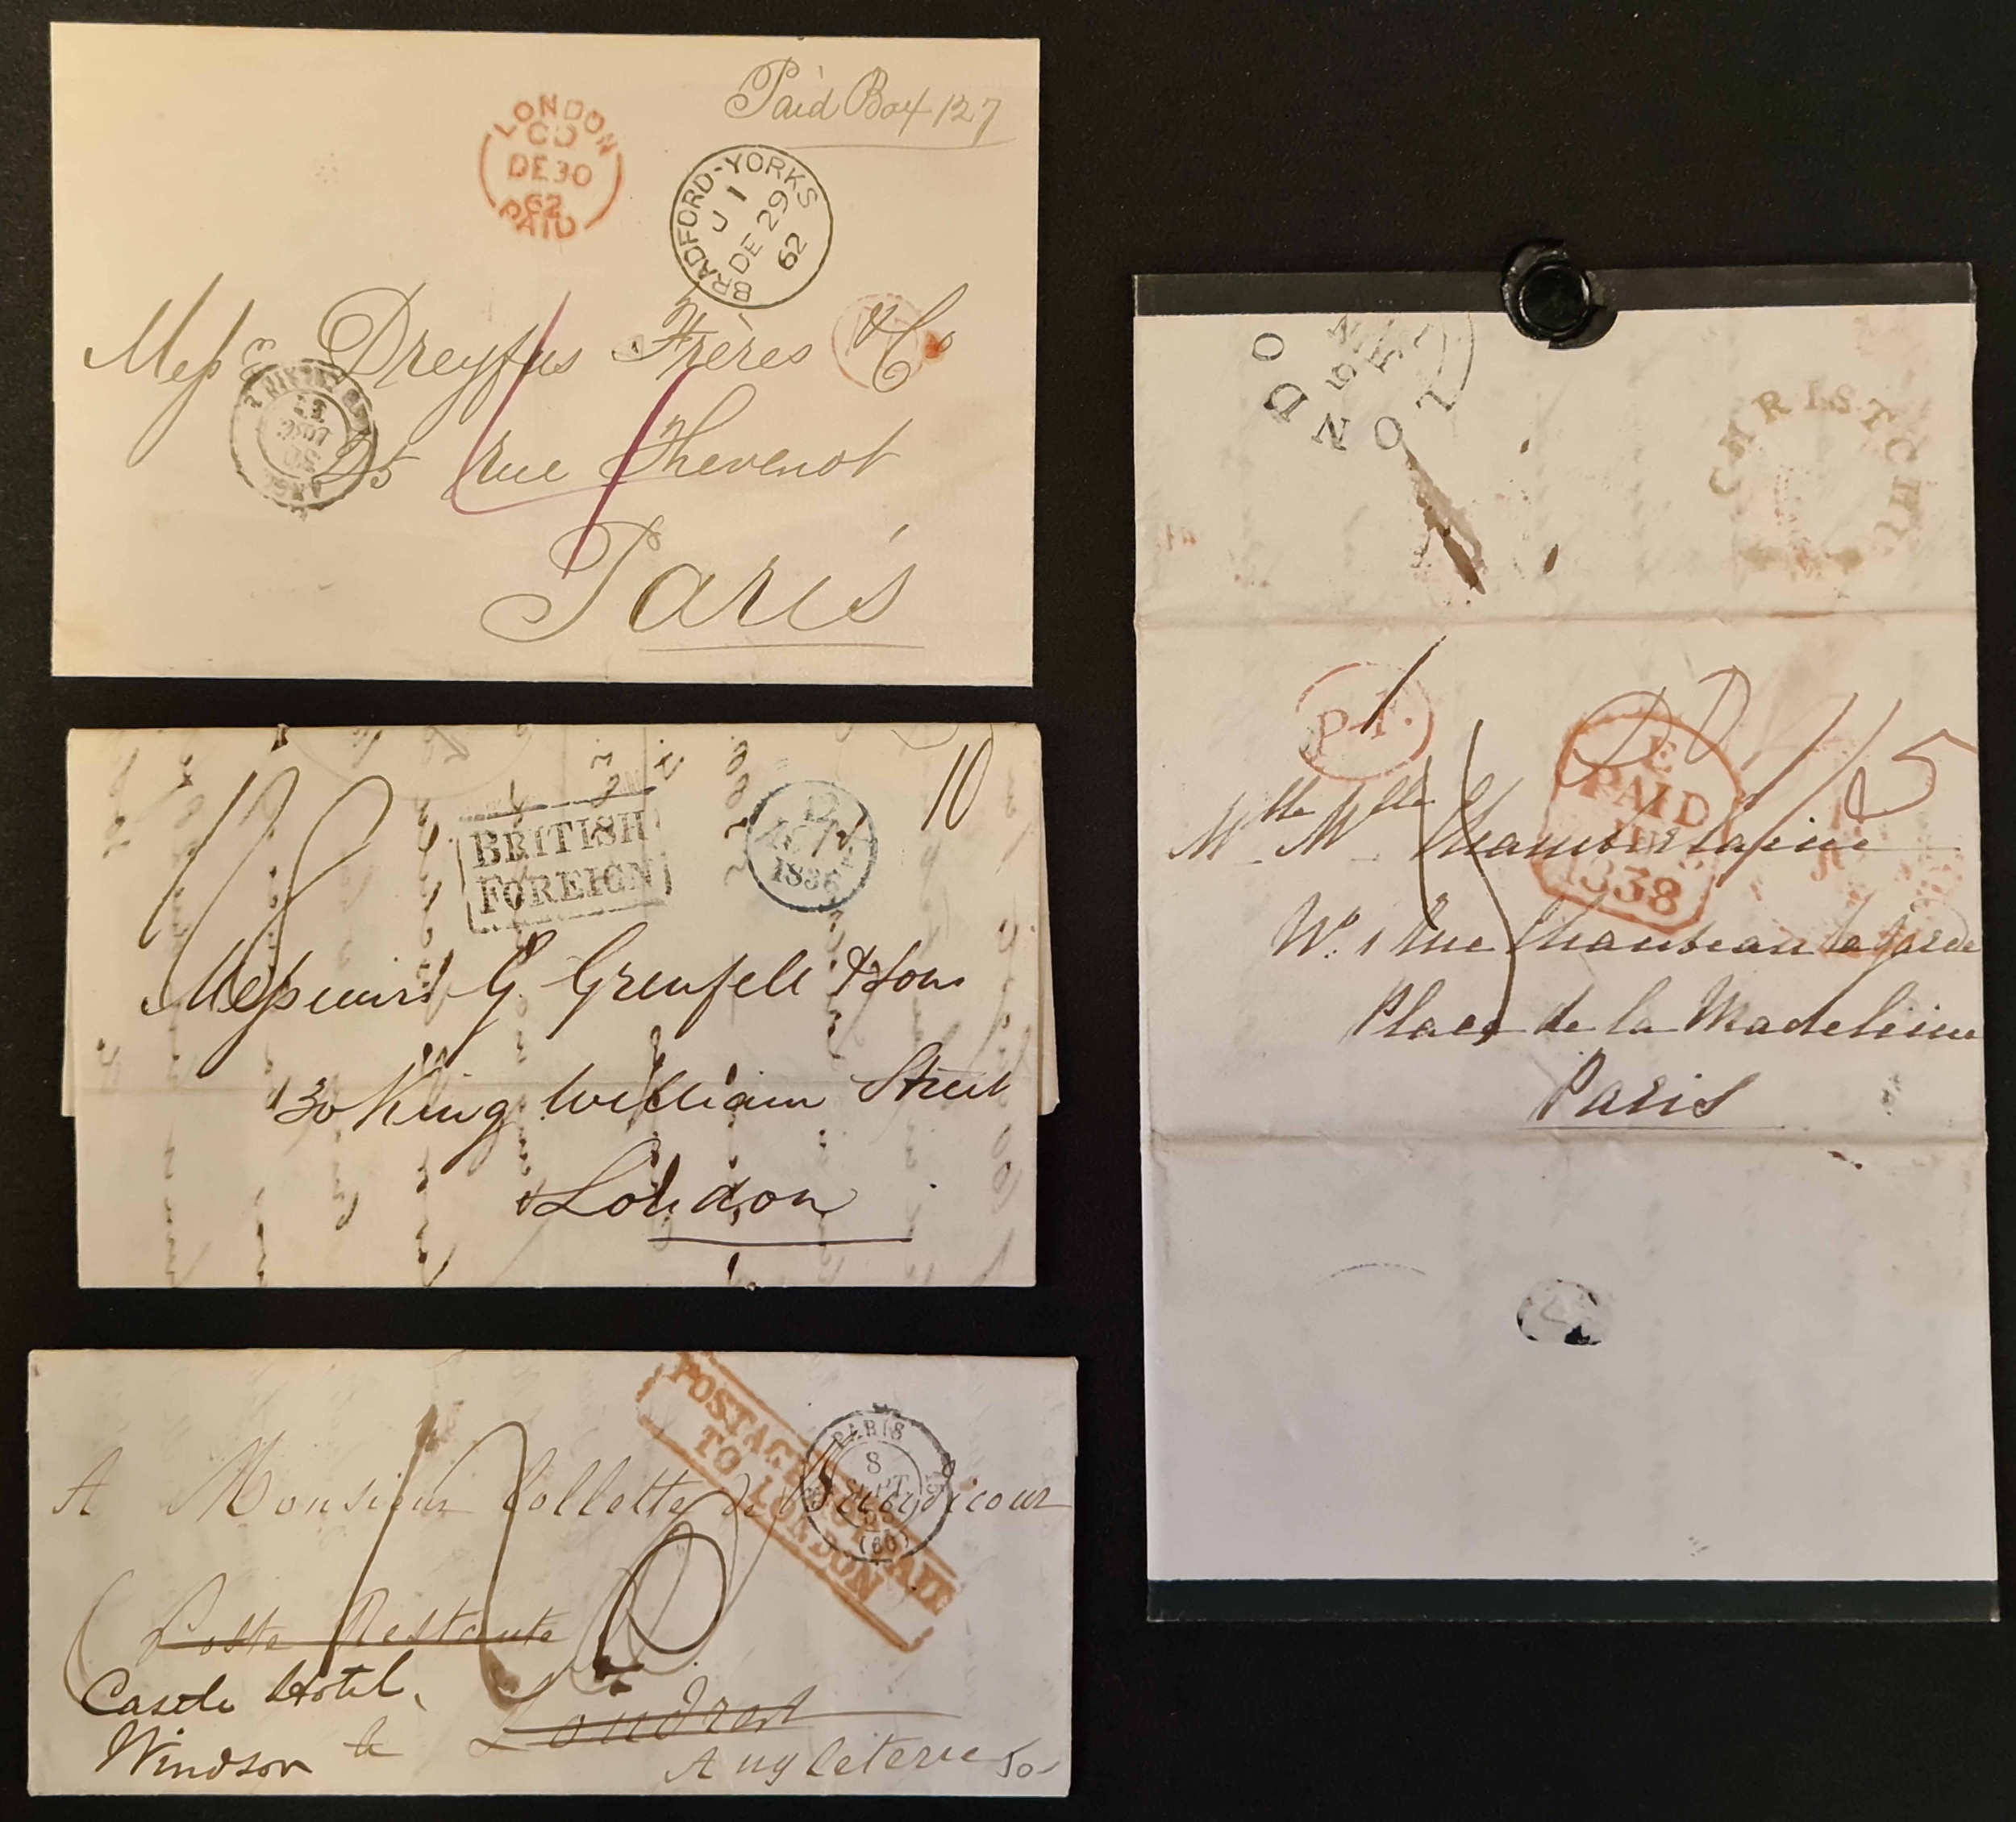 Paid Box 127
LONDON
CD
DE 30
62
PAID
BRADFORD-YORKS
U 1
DE 29
62
Messrs Dreyfus Frères & Co
25 rue Thevenot
Paris
18
10
BRITISH
FOREIGN
12
1836
Messieurs G. Grenfell & Sons
30 King William Street
London
POSTAGE PAID
TO LONDON
PARIS
8
SEPT.
(60)
A Monsieur Collette de
Poste Restante
Castle Hotel,
Windsor
à Londres
Angleterre
50
LONDO
CHRISTCHU
P.F.
E
PAID
1838
Mlle Mlle Chamberlaine
No. 1 Rue Chauveau Lagarde
Place de la Madeleine
Paris